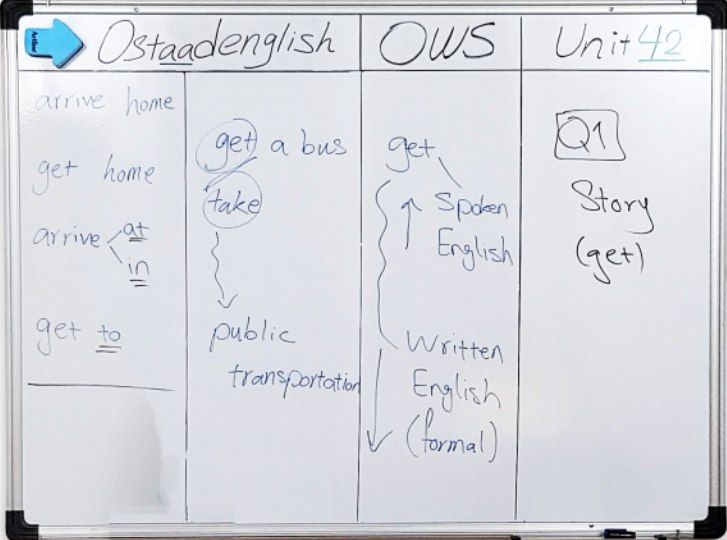 Ostaadenglish
OWS
Unit 42
arrive home
get home
arrive at
in
get to
get a bus
take
public
transportation
get
Spoken
English
Written
English
(formal)
Q1
Story
(get)